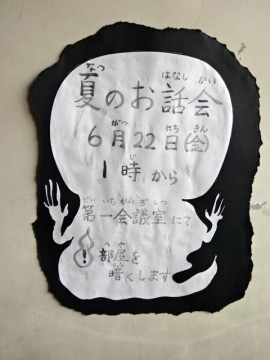 夏のお話会
6月22日(金)
1時から
第一会議室にて
! 部屋を
暗くします